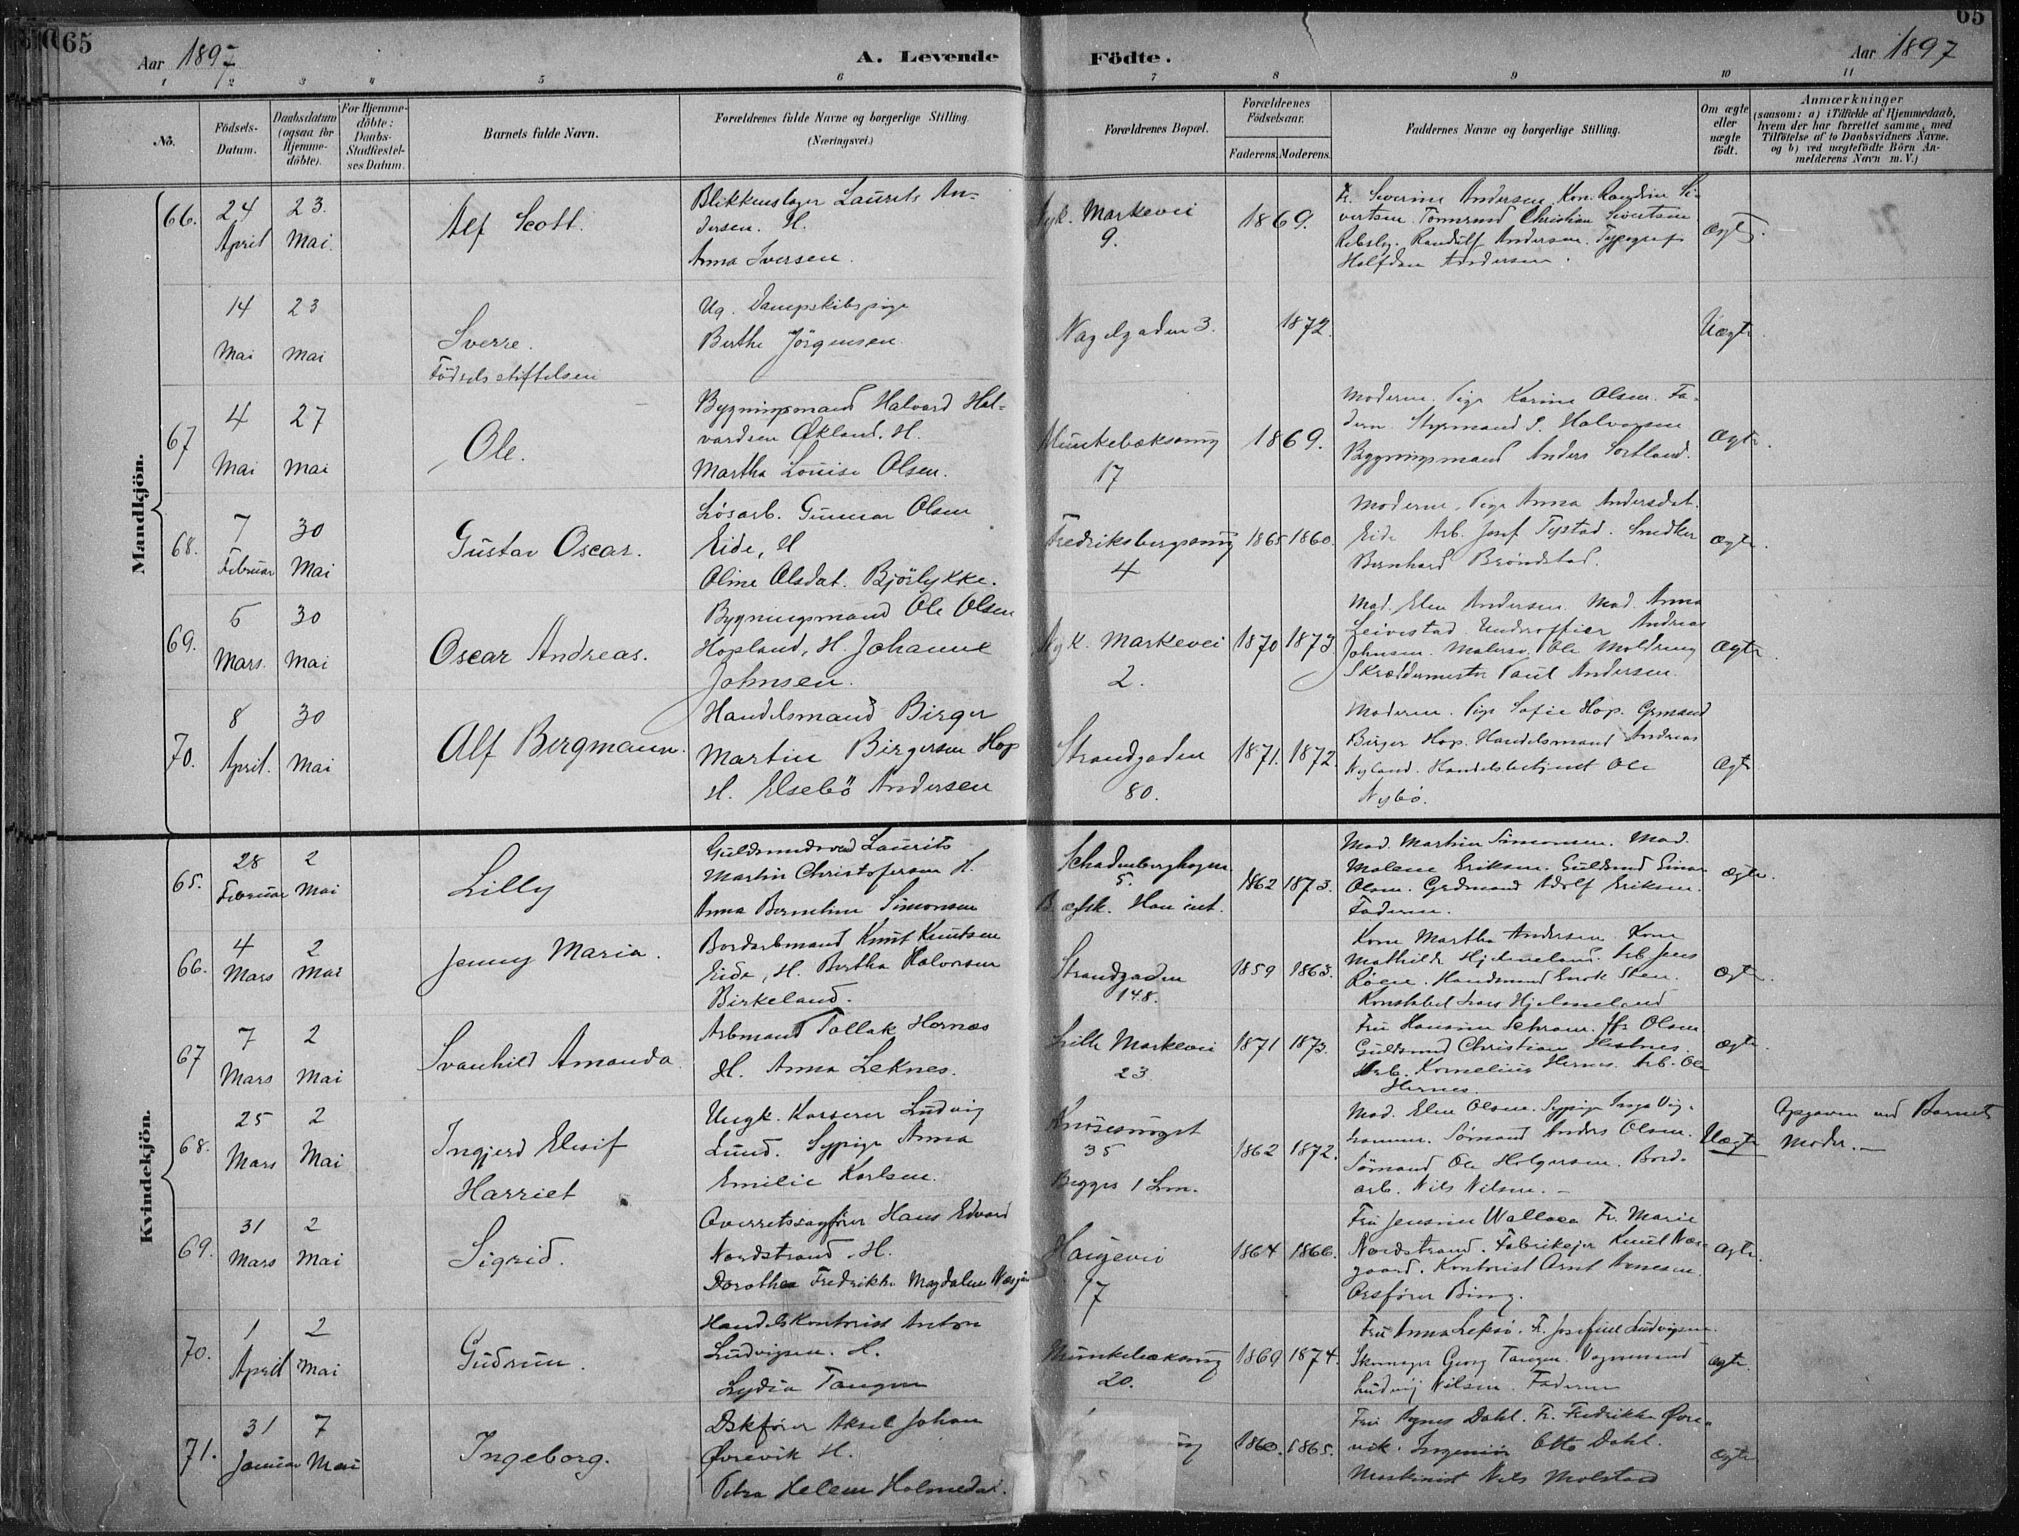 65
65
Aar 1897
A. Levende
Födte.
Aar 1897
1 2 3 4 5 6 7 8 9 10 11
No.
Födsels-
Datum.
Daabsdatum
(ogsaa for
Hjemme-
döbte).
For Hjemme-
döbte:
Daabs-
Stadfæstel-
ses Datum.
Barnets fulde Navn.
Forældrenes fulde Navne og borgerlige Stilling
(Næringsvei.)
Forældrenes Bopæl.
Forældrenes
Födselsaar.
Faderens.
Moderens.
Faddernes Navne og borgerlige Stilling.
Om ægte
eller
uægte
födt.
Anmærkninger
(saasom: a) i Tilfælde af Hjemmedaab,
hvem der har forrettet samme, med
Tilföielse af to Daabsvidners Navne,
og b) ved uægtefödte Börn An-
melderens Navn m. V.)
Mandkjön.
66.
24
April
23.
Mai
Alf Scott.
Blikkenslager Laurits An-
dersen. H.
Anna Iversen.
Nyk. Markevei
9.
1869.
Fr. Severine Andersen. Kon. Ragdine Si-
vertsen. Tömrmd Christian Sivertsen
Rebsbg. Randulf Andersen. Typograf
Halfdan Andersen.
Ægte.
14
Mai
23
Mai
Sverre.
Födselsstiftelsen
Ug. Dampskibspige
Berthe Jörgensen
Nagelgaden 3.
1872.
Uægte
67
4
Mai
27
Mai
Ole.
Bygningsmand Halvard Hal-
vardsen Økland. H.
Martha Louise Olsen.
Munkebæksmug
17
1869.
Moderen. Pige Karine Olsen. Fa-
deren Styrmand S. Halvorsen
Bygningsmand Anders Sortland.
Ægte.
68.
7
Februar
30
Mai
Gustav Oscar.
Løsarb. Gunnar Olsen
Eide, H
Oline Olsdat. Bjørlykke.
Fredriksbergsmug
4
1865
1860.
Moderen, Pige Anna Andersdat.
Eide Arb. Josef Tystad. Snedker
Bernhard Bröndstad.
Ægte.
69.
5
Mars.
30
Mai
Oscar Andreas.
Bygningsmand Ole Olsen
Hopland, H. Johanne
Johnsen.
Nyk. Markevei
2.
1870
1873
Mad. Elen Andersen. Mad. Anna
Leivestad Underofficer Andreas
Johnsen. Malersv. Ole Moldrung
Skræddermester Paul Andersen.
Ægte.
70.
8
April.
30
Mai
Alf Bergmann.
Handelsmand Birger
Martin Birgersen Hop
H. Elsebö Andersen
Strandgaden
80.
1871.
1872.
Moderen. Pige Sofie Hop. Grmand
Birger Hop. Handelsmand Andreas
Nyland. Handelsbetjent Ole
Nybö.
Ægte
Kvindekjön.
65.
28
Februar
2
Mai
Lilly
Guldsmedsvend Laurits
Martin Christofersen H.
Anna Berentine Simonsen
Schadenberghagen
5.
1862
1873.
Mad. Martine Simonsen. Mad.
Malene Eriksen. Guldsmd Einar
Olsen. Grdmand Adolf Eriksen.
Faderen.
Ægte.
66.
4
Mars
2
Mai
Jenny Maria.
Bordarbmand Knut Knutsen
Eide, H. Bertha Halvorsen
Birkeland.
Strandgaden
148.
1859
1863.
Kone Martha Andersen. Kone
Mathilde Hjelmeland. Arb Jens
Røen. Handsmand Enok Steen.
Konstabel Lars Hjelmeland
Ægte.
67
7
Mars
2
Mai
Svanhild Amanda.
Arbmand Tollak Hernes
H. Anna Leknes.
Lille Markevei
23
1871
1873.
Fru Hansine Schram. Jfr Olsen
Guldsmd Christian Hestnes.
Arb. Kornelius Hernes. Arb. Ole
Hernes.
Ægte.
68.
25
Mars
2
Mai
Ingjerd Elisif
Harriet
Ungk. Kasserer Ludvig
Lund. Sypige Anna
Emilie Karlsen.
Knösesmuget
35
Begges 1 Lm.
1862
1872.
Mad. Elen Olsen. Sypige Inga Vig-
Sömand Anders Olsen.
Sömand Ole Holgersen. Bord-
arb. Nils Nilsen. —
Uægte
Opgaven ved Barnets
Moder. —
69.
31
Mars
2
Mai
Sigrid.
Overretssagfører Hans Edvard
Nordstrand. H.
Dorothea Fredrikke Magdalene
Haugevei
17
1864
1866.
Fru Jensine Wallace Fr. Marie
Nordstrand. Fabrikejer Knut Næs-
gaard. Kontorist Arnt Arnesen.
Orsfører Bing.
Ægte.
70.
1
April
2
Mai
Gudrun.
Handelskontorist Anton
Ludvigsen. H.
Lydia Tangen
Munkebæksmug
20.
1869
1874.
Fru Anna Lepsö. Fr. Josefine Ludvigsen.
Skomager Georg Tangen. Vognmand
Ludvig Nilsen. Faderen
Ægte.
71.
31
Januar
7
Mai
Ingeborg.
Dskfører Aksel Johan
Øvrevik H.
Petra Helene Holmedal.
1860.
1865.
Fru Agnes Dahl. Fr. Fredrikke Øvre-
vik. Ingeniör Otto Dahl.
Maskinist Nils Molstad
Ægte